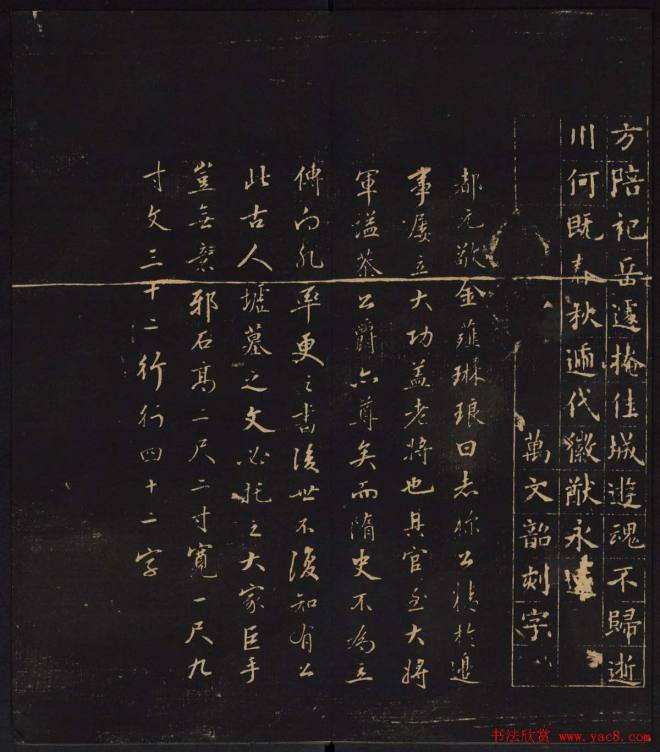 方陪祀岳遽掩佳城遊魂不歸逝
川何既春秋遞代徽猷永遠
萬文韶刻字
都元敬金薤琳琅曰志稱公精於邊
事屢立大功蓋老將也其官至大將
軍謚恭公爵亦尊矣而隋史不為立
傳向非率更之書後世不復知有公
此古人墟墓之文必託之大家巨手
豈無意邪石高二尺二寸寬一尺九
寸文三十二行行四十二字
书法欣赏 www.yac8.com